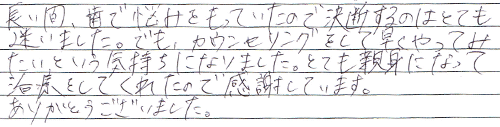 長い間、歯で悩みをもっていたので決断するのはとても
迷いました。でも、カウンセリングをして早くやってみ
たいという気持ちになりました。とても親身になって
治療をしてくれたので感謝しています。
ありがとうございました。